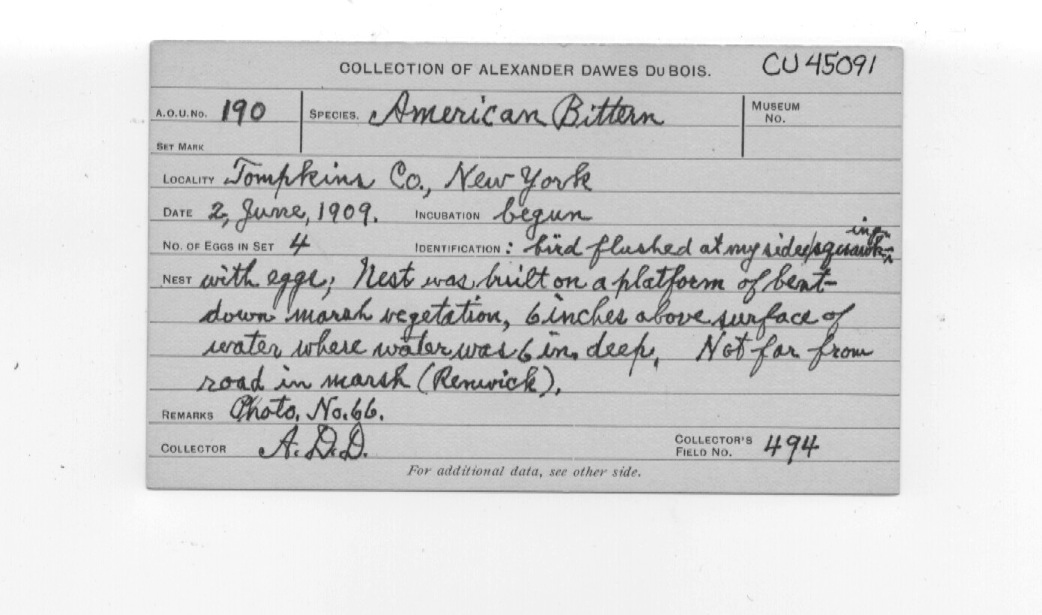 COLLECTION OF ALEXANDER DAWES DU BOIS. CU 45091
A.O.U. No. 190 SPECIES. American Bittern MUSEUM No.
SET MARK
LOCALITY Tompkins Co., New York
DATE 2, June, 1909. INCUBATION begun
NO. OF EGGS IN SET 4 IDENTIFICATION: bird flushed at my side, squawking
NEST with eggs; Nest was built on a platform of bent-
down marsh vegetation, 6 inches above surface of
water where water was 6 in. deep. Not far from
road in marsh (Renwick).
REMARKS Photo. No. 66.
COLLECTOR A.D.D. COLLECTOR'S FIELD NO. 494
For additional data, see other side.